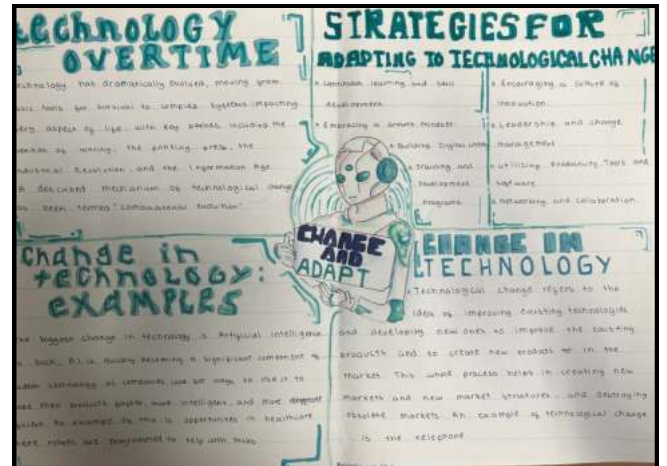 technology
OVERTIME
technology has dramatically evolved, moving from
basic tools for survival to complex systems impacting
every aspect of life, with key periods including the
invention of writing, the printing press, the
Industrial Revolution and the Information Age.
A described mechanism of technological change
has been termed "Combinatorial evolution".
STRATEGIES FOR
ADAPTING TO TECHNOLOGICAL CHANGE
Continuous learning and skill
development
Embracing a growth mindset
Building Digital
Training and
Development
programs
Encouraging a culture of
innovation
Leadership and change
management
Utilizing Productivity Tools and
software
Networking and collaboration.
CHANGE
AND
ADAPT
Change in
technology:
EXAMPLES
biggest change in technology is Artificial intelligence
such, AI is quickly becoming a significant component of
modern technology as companies look for ways to use it to
make their products better, more intelligent, and more
An example of this is opportunities in healthcare
where robots are programmed to help with tasks.
CHANGE IN
TECHNOLOGY
Technological change refers to the
idea of improving existing technologies
and developing new ones to improve the existing
products and to create new products in the
market. This whole process helps in creating new
markets and new market structures, and destroying
obsolete markets. An example of technological change
is the telephone